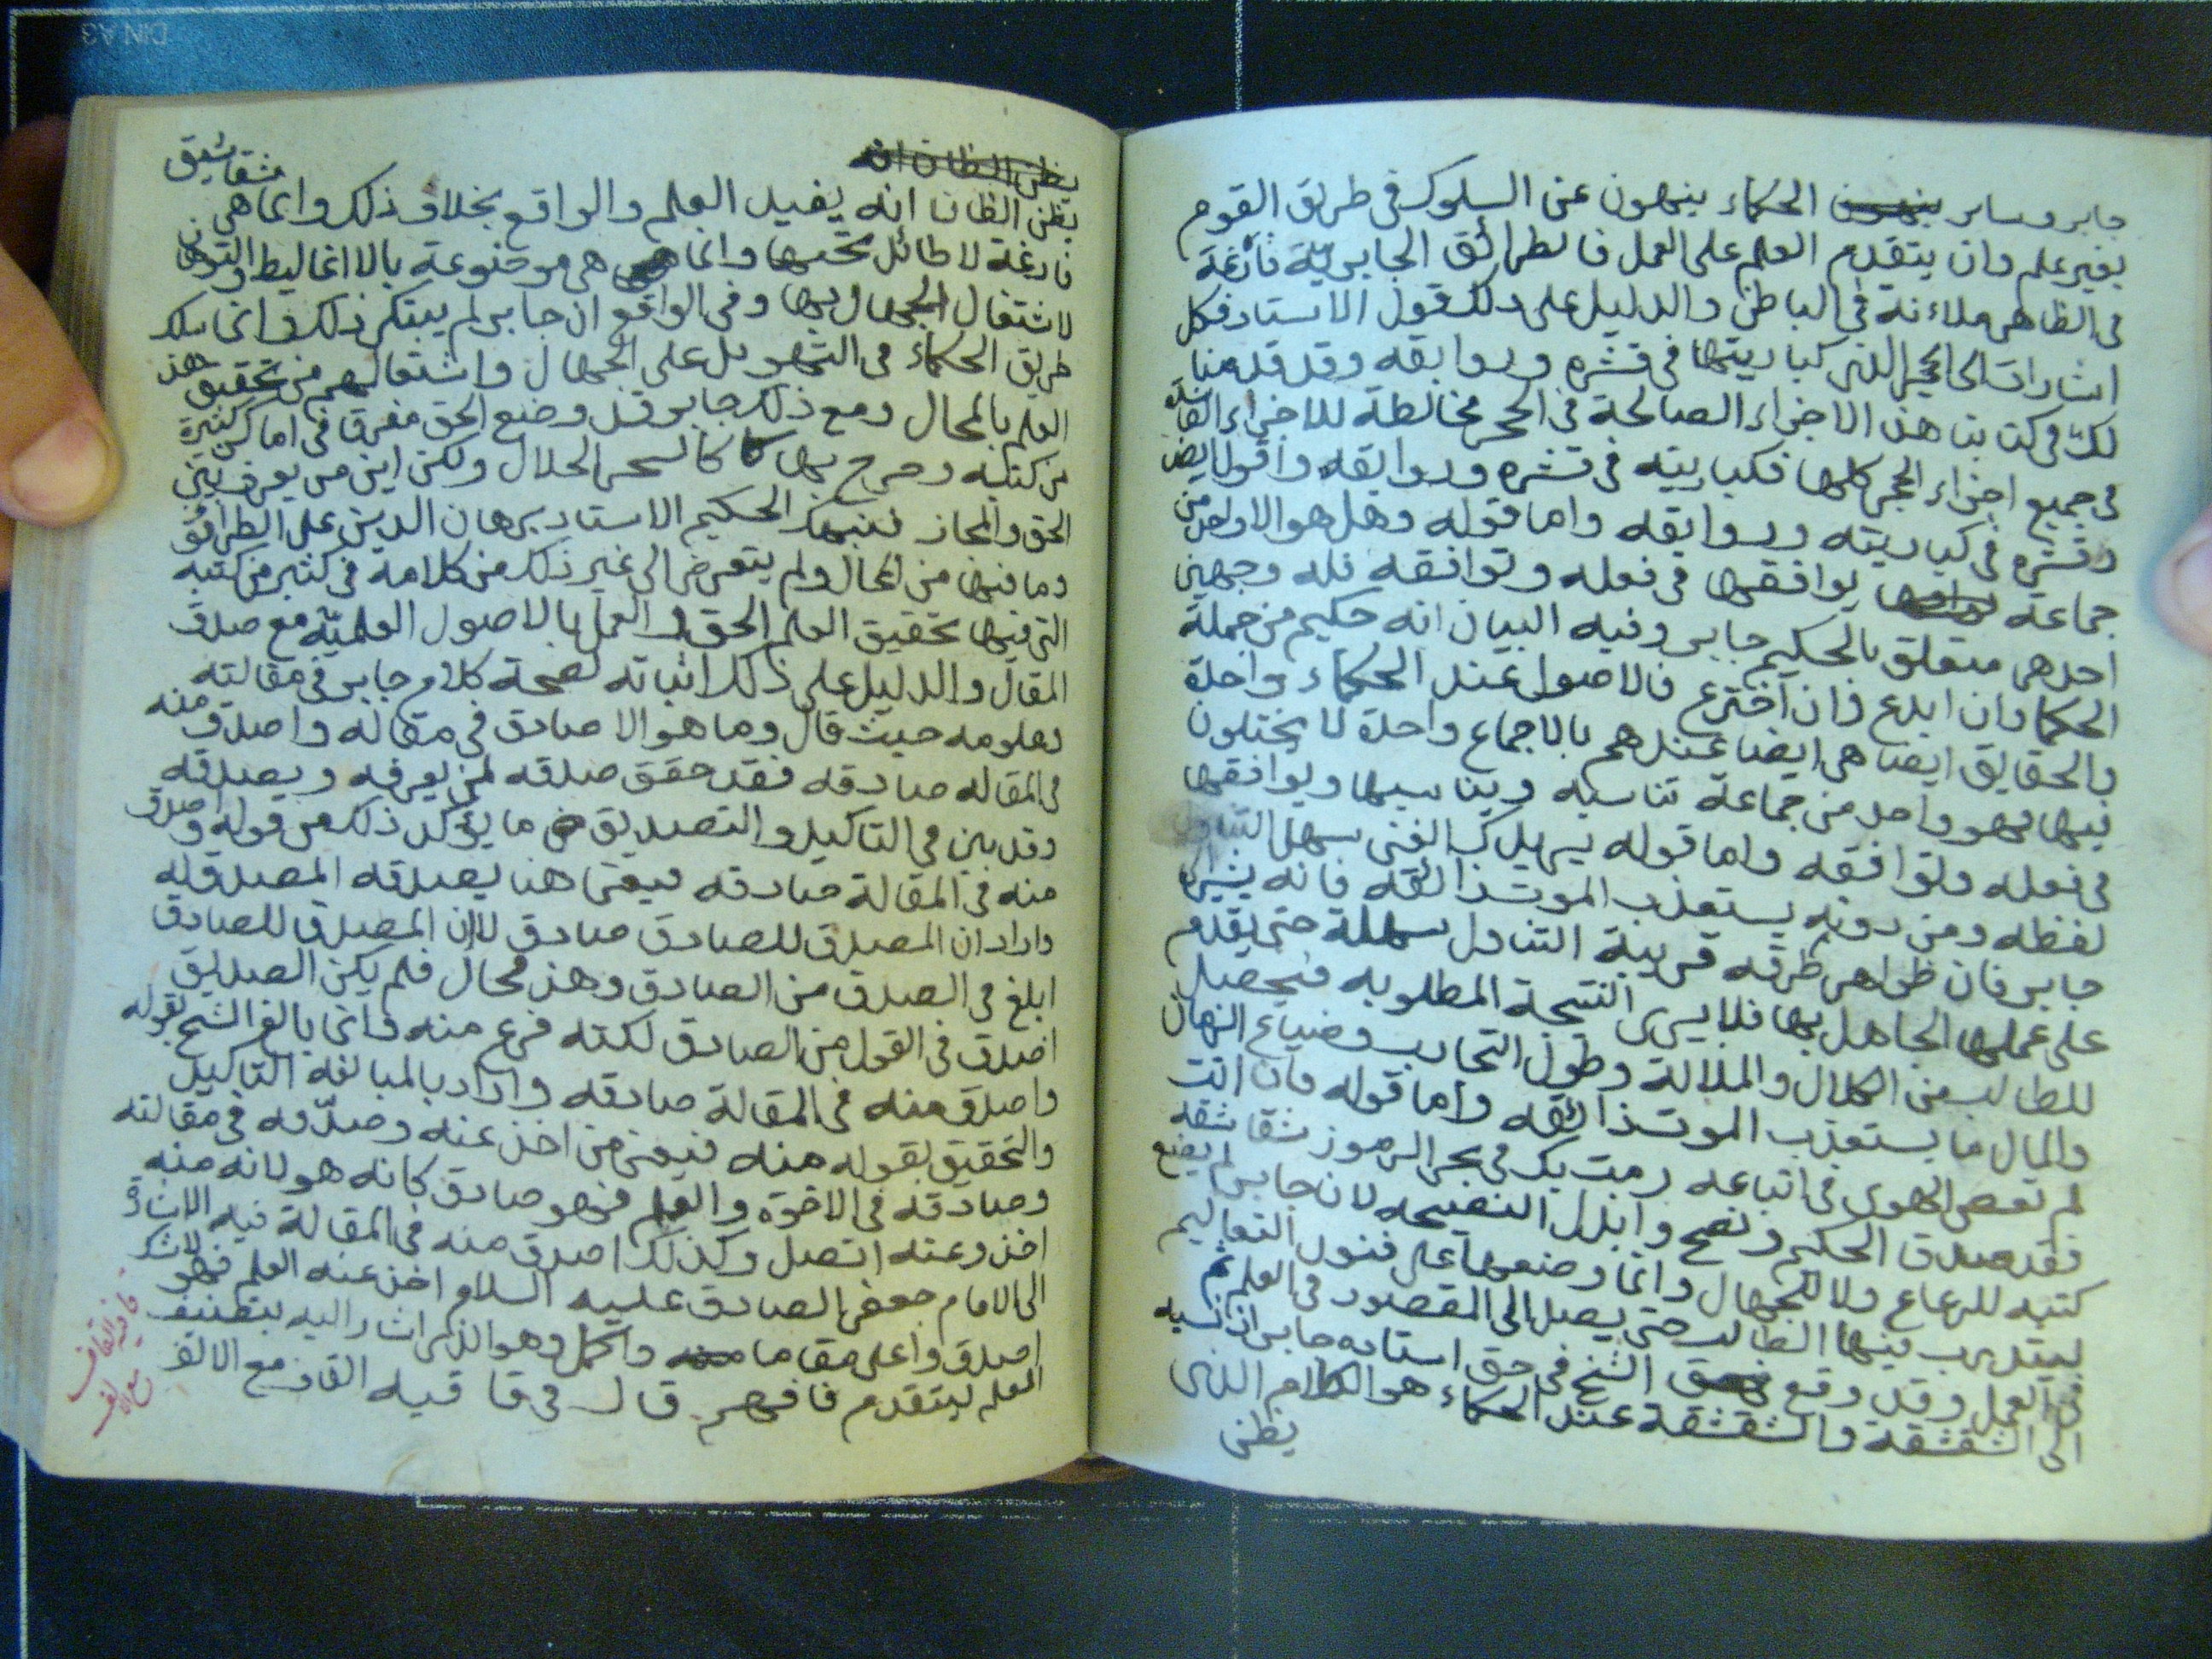 جابر وساير ينهون الحكماء ينهون عن السلوك في طريق القوم
بغير علم وان يتقدم العلم على العمل فالطرائق الجابريّة فارغة
في الظاهر ملاءنة في الباطن والدليل على ذلك قول الاستاد فكل
اشارات الى الحجر الذي كباريتها في قشره وروابقه وقد قدمنا
لك في كتابنا هذا الاجزاء الصالحة في الحجر مخالطة للاجزاء الفاسدة
في جميع اجزاء الحجر كلها فكباريته في قشره وروابقه واقول ايضا
وقشره في كباريته وروابقه واما قوله وهل هو الا واحد من
جماعة يوافقها في فعله وتوافقه فله وجهين
احدهم متعلق بالحكيم جابر وفيه البيان انه حكيم من جملة
الحكما وان ابدع وان اخترع فالاصول عند الحكماء واحدة
والحقايق ايضا هي ايضا عندهم بالاجماع واحدة لا يختلون
فيها فهو واحد من جماعة تناسبه ويناسبها ويوافقها
في فعله وتوافقه واما قوله يريك الفتى سهل التناول
لفظه ومن دونه يستعذب الموت ذائقه فانه يشير الى
جابر فان ظواهر طرقه قريبة التناول سهلة حتى يقدم
على عملها الجاهل بها فلا يرى النتيجة المطلوبه فيحصل
للطالب من الكلال والملالة وطول التجارب وضياع الزمان
والمال ما يستعذب الموت ذائقه واما قوله فان انت
لم تعص الهوى في اتباعه رمت بك في بحر الرموز شقاشقه
فقد صدق الحكيم ونصح وابذل النصيحه لان جابر لم يضع
كتبه للرعاع ولا للجهال وانما وضعها على فنون التعاليم
ليتدرب فيها الطالب حتى يصل الى المقصود في العلم ثم
في العمل وقد وقع الشيخ في حق استاده جابر ان نسبه
الى الشقشقة والشقشقة عند الحكماء هو الكلام الذي
يظن
يظن الظان انه
يظن الظانا انه يفيد العلم والواقع بخلاف ذلك وانما هي شقاشيق
فارغة لا طائل تحتها وانما هي موضوعة بالااغاليط والتوهان
لاشتغال الجهال بها وفي الواقع ان جابر لم يبتكر ذلك وانما سلك
طريق الحكماء في التهويل على الجهال واشتغالهم من تحقيق هذا
العلم بالمحال ومع ذلك جابر قد وضع الحق مفرقا في اماكن كثيرة
من كتبه وصرح بها كا كالسحر الحلال ولكن اين من يعرف بين
الحق والمجاز فنبهك الحكيم الاستاد برهان الدين على الطرائق
وما فيها من المحال ولم يتعرض الى غير ذلك من كلامه في كثير من كتبه
التي فيها تحقيق العلم الحق والعمل بالاصول العلميّة مع صدق
المقال والدليل على ذلك اثباته لصحة كلام جابر في مقالته
لعلومه حيث قال وما هو الا صادق في مقاله واصدق منه
في المقاله صادقه فقد حقق صدقه لمن يعرفه ويصدقه
وقد بين في التاكيد والتصديق ما يؤكد ذلك من قوله واصدق
منه في المقالة صادقه فيعني هنا يصدقه المصدق له
واراد ان المصدق للصادق صادق لا ان المصدق للصادق
ابلغ في الصدق من الصادق وهذ محال فلم يكن الصديق
اصدق في القول من الصادق لكنه فرع منه وانما بالغ الشيخ بقوله
واصدق منه في المقالة صادقه واراد بالمبالغه التاكيد
والتحقيق بقوله منه فيعني من اخذ عنه وصدّقه في مقالته
وصادقه في الاخوة والعلم فهو صادق كانه هو لانه منه
اخذ وعنه اتصل وكذلك اصدق منه في المقالة فيه الاشارة
الى الامام جعفر الصادق عليه السلام اخذ عنه العلم فهو لاشك
اصدق واعلى مقاما واكمل وهو الذي اشار اليه بتصنيف
العلم ليتقدم فافهم قال في قافيه القاف مع الالف
قافية القاف
مع الالف